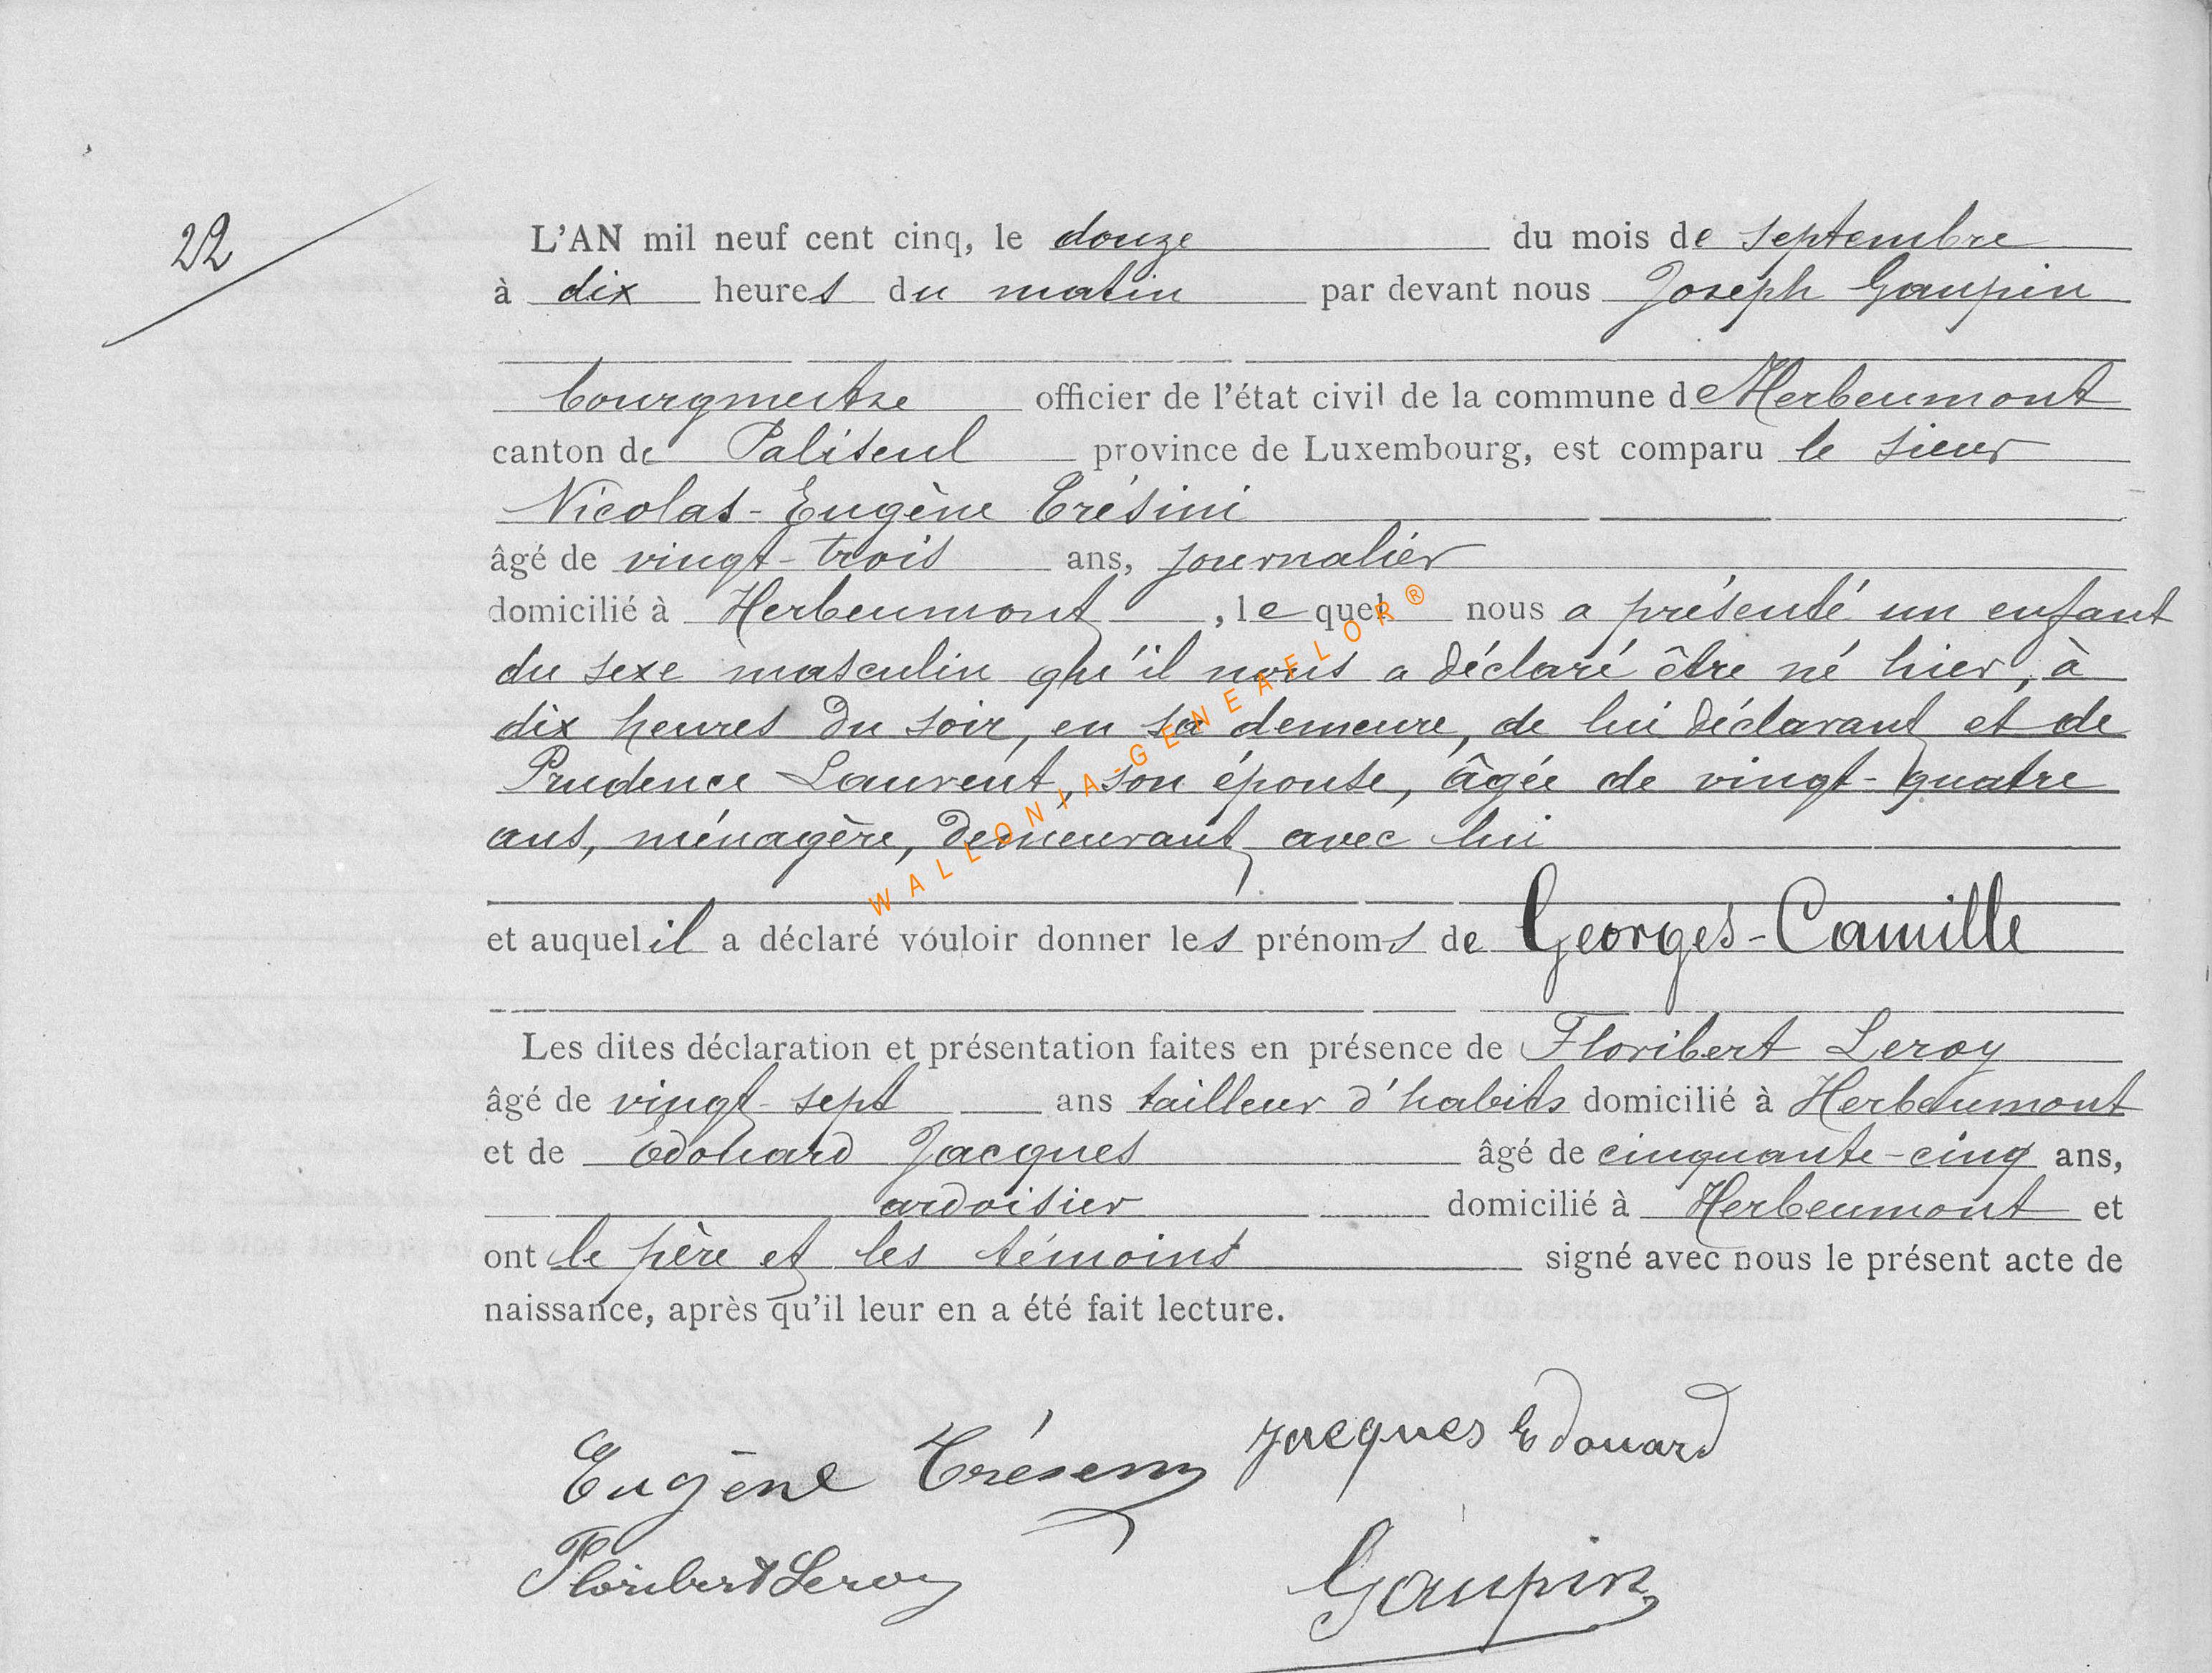 22
L'AN mil neuf cent cinq, le douze du mois de septembre
à dix heures du matin par devant nous Joseph Gaupin
bourgmestre officier de l'état civil de la commune de Herbeumont
canton de Paliseul province de Luxembourg, est comparu le sieur
Nicolas-Eugène Trésini
âgé de vingt-trois ans, journalier
domicilié à Herbeumont, lequel nous a présenté un enfant
du sexe masculin qu'il nous a déclaré être né hier, à
dix heures du soir, en sa demeure, de lui déclarant et de
Prudence Laurent, son épouse, âgée de vingt-quatre
ans, ménagère, demeurant avec lui
WALLONIA-GENEAFLOR®
et auquel il a déclaré vouloir donner les prénoms de Georges-Camille
Les dites déclaration et présentation faites en présence de Floribert Leroy
âgé de vingt-sept ans tailleur d'habits domicilié à Herbeumont
et de Edouard Jacques âgé de cinquante-cinq ans,
ardoisier domicilié à Herbeumont et
ont le père et les témoins signé avec nous le présent acte de
naissance, après qu'il leur en a été fait lecture.
Eugène Trésiny Jacques Edouard
Floribert Leroy Gaupin